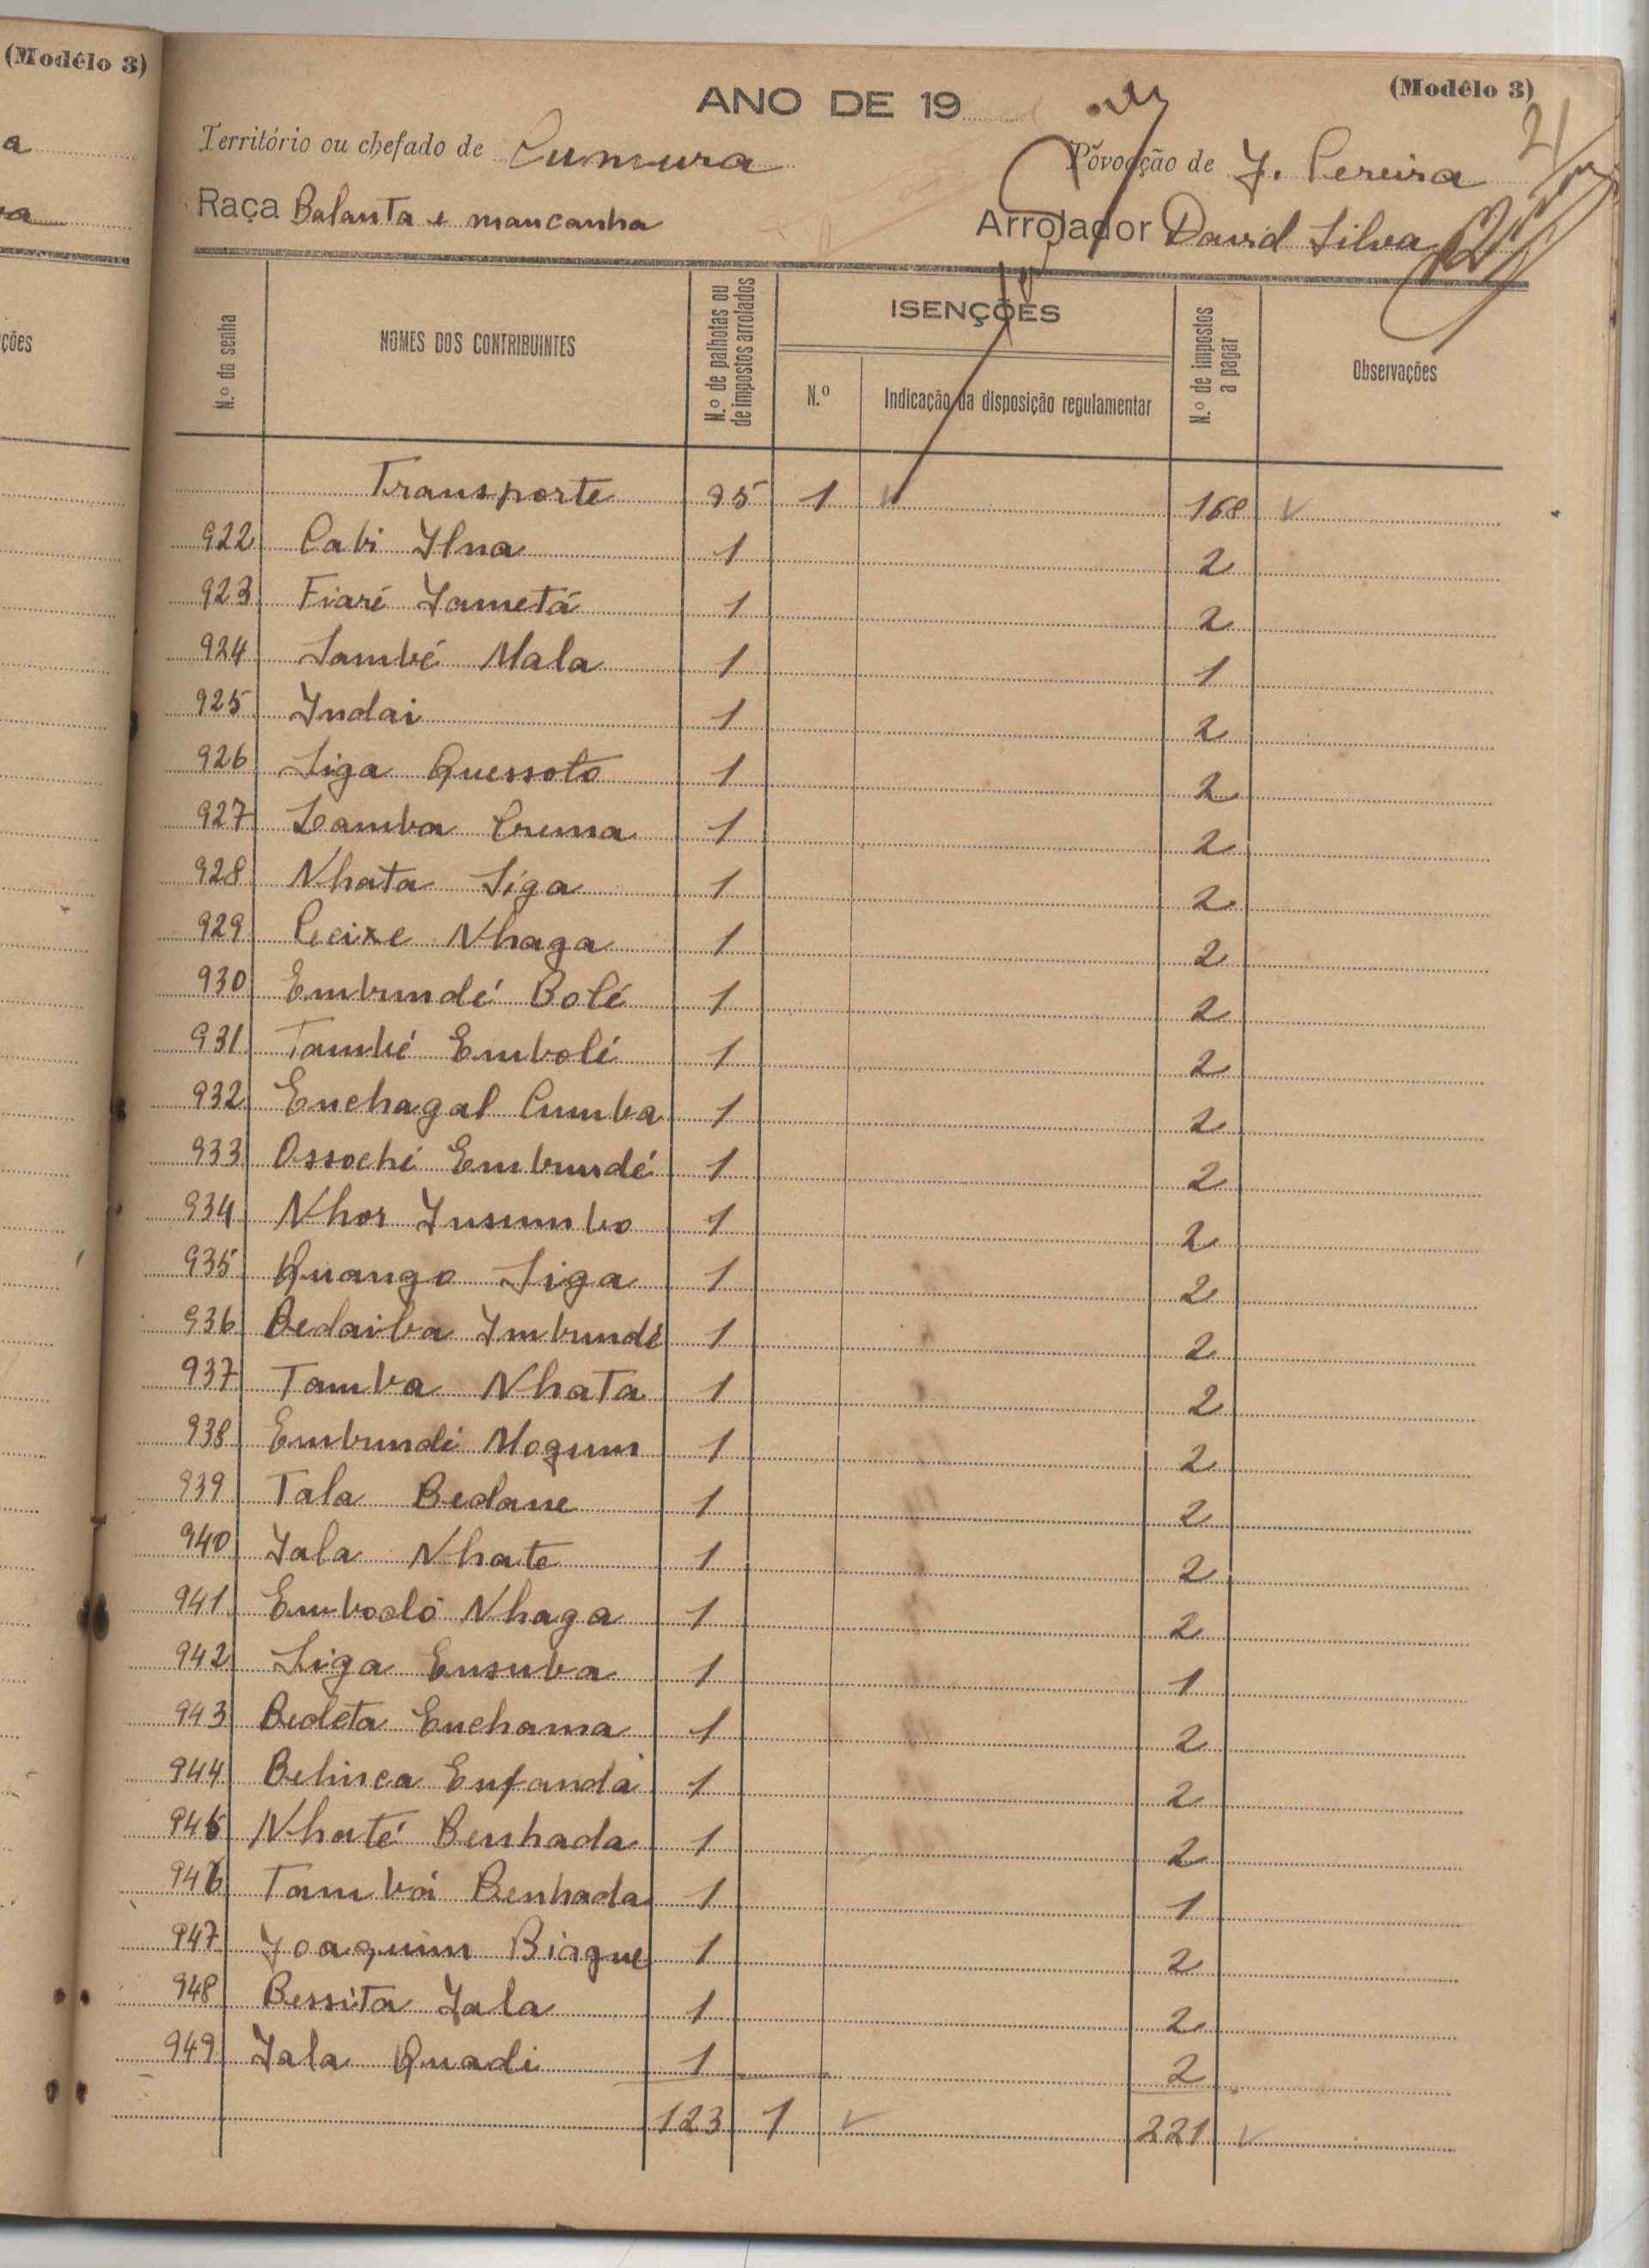 (Modêlo 3)
a
ções
(Modêlo 3)
ANO DE 19
Território ou chefado de Cumura
Póvoação de J. Pereira
21
Raça Balanta e mancanha
Arrolador David Silva
N.º da senha
NOMES DOS CONTRIBUINTES
N.º de palhotas ou de impostos arrolados
ISENÇÕES
N.º
Indicação da disposição regulamentar
N.º de impostos a pagar
Observações
Transporte 95 1 168
922 Cabi Ilna 1 2
923 Fiaré Jametá 1 2
924 Sambé Mala 1 1
925 Indai 1 2
926 Siga Quessoto 1 2
927 Lamba Cruma 1 2
928 Nhata Siga 1 2
929 Peixe Nhaga 1 2
930 Embundé Bolé 1 2
931 També Embolé 1 2
932 Enchagal Cumba 1 2
933 Ossoché Embundé 1 2
934 Nhor Insumbo 1 2
935 Quango Siga 1 2
936 Bedaiba Imbundé 1 2
937 Tamba Nhata 1 2
938 Embundé Moqum 1 2
939 Tala Bedane 1 2
940 Jala Nhate 1 2
941 Emboaló Nhaga 1 2
942 Siga Ensuba 1 1
943 Bedeta Enchama 1 2
944 Belinca Enfandá 1 2
945 Nhaté Benhada 1 2
946 Tambá Benhada 1 1
947 Joaquim Biague 1 2
948 Bessita Jala 1 2
949 Jala Quadi 1 2
123 1 221